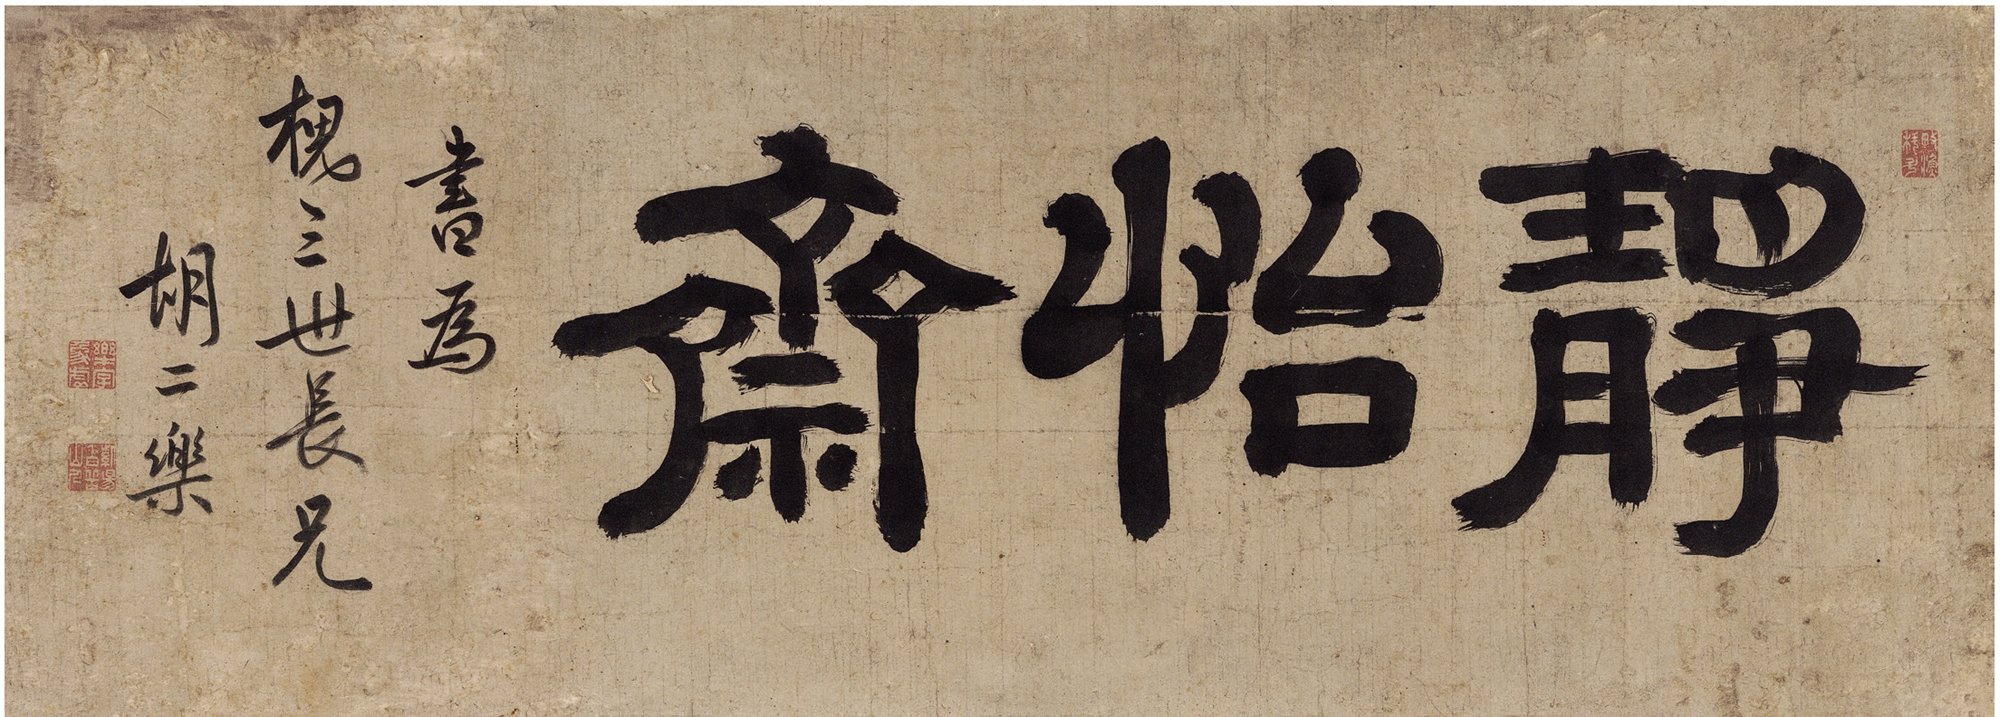 靜怡齋
書為
槐三世長兄
胡二樂